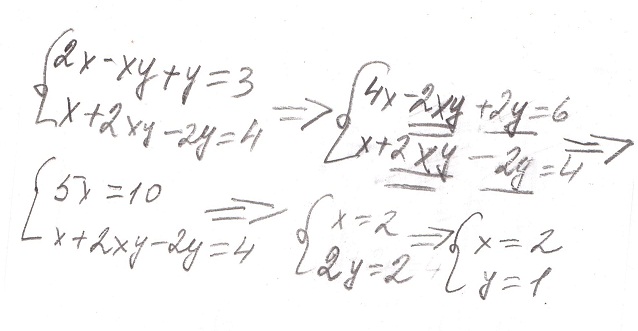 {2x-xy+y=3
x+2xy-2y=4 =>
{4x-2xy+2y=6
x+2xy-2y=4 =>
{5x=10
x+2xy-2y=4 =>
{x=2
2y=2 =>
{x=2
y=1